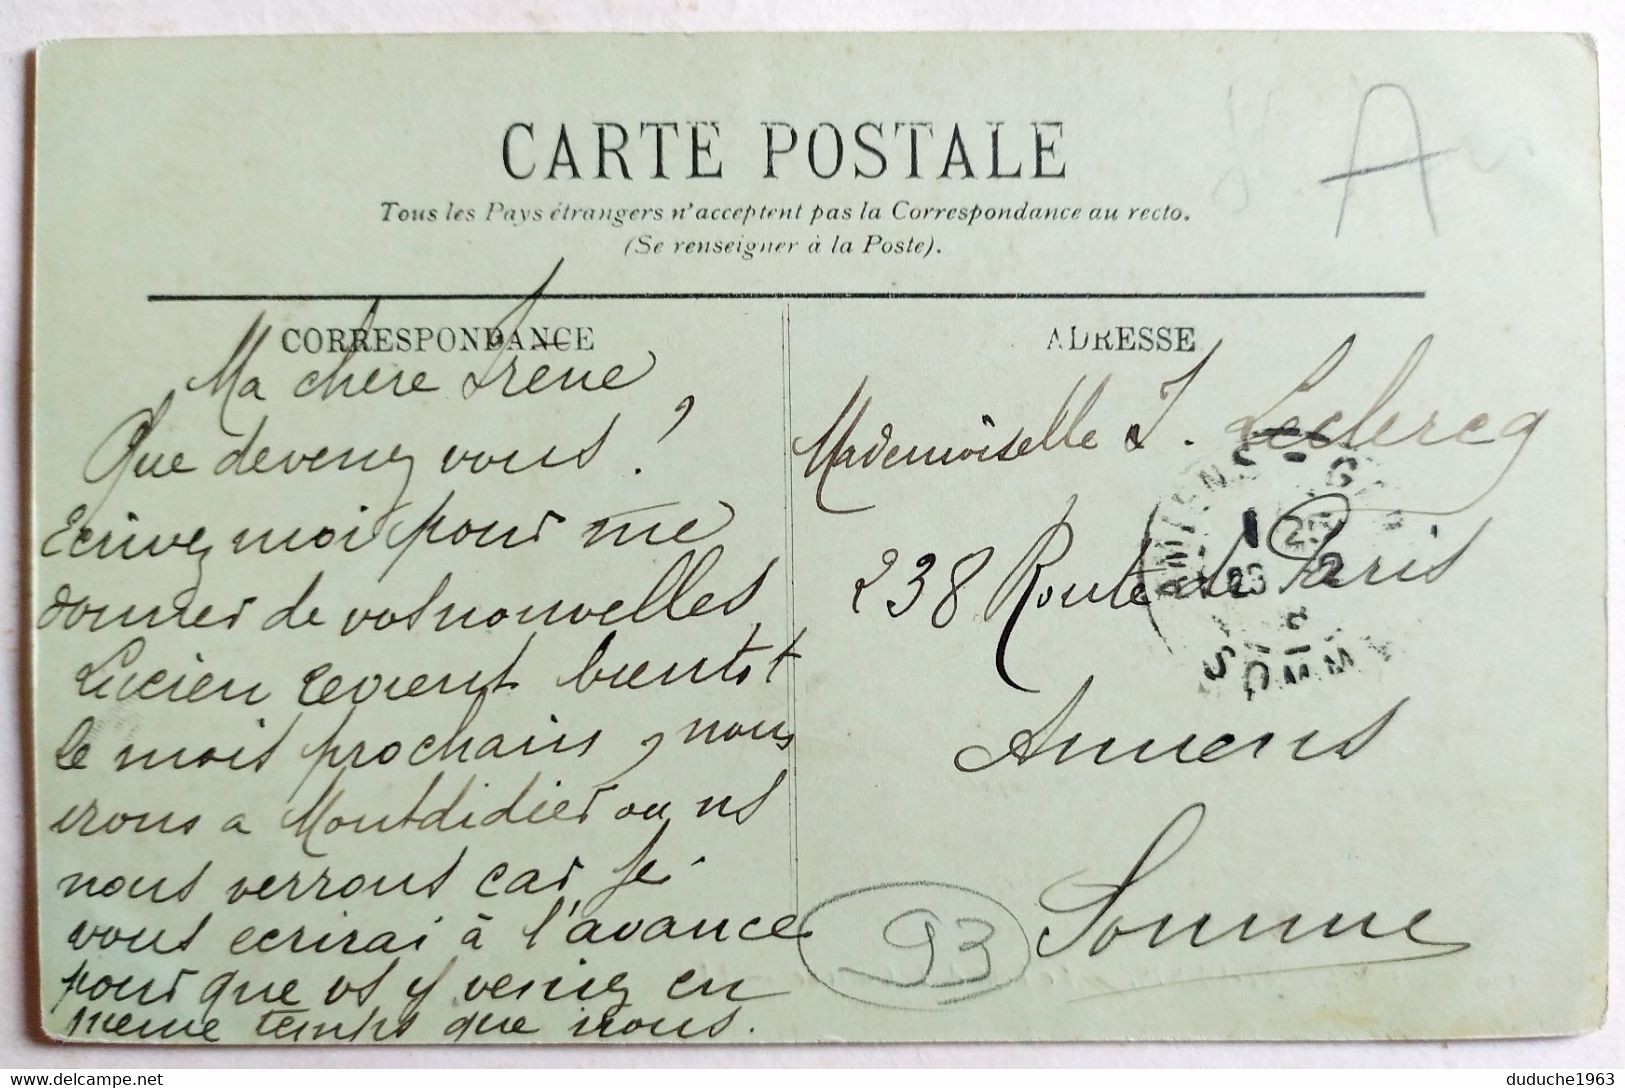 A
CARTE POSTALE
Tous les Pays étrangers n'acceptent pas la Correspondance au recto.
(Se renseigner à la Poste).
CORRESPONDANCE
Ma chere Irene
Que devenez vous ?
Ecrivez moi pour me
donner de vos nouvelles
Lucien revient bientot
le mois prochain, nous
irons a Montdidier ou ns
nous verrons car je
vous ecrirai à l'avance
pour que vs y veniez en
meme temps que nous.
ADRESSE
Mademoiselle I. Leclercq
238 Route de Paris
Amiens
Somme
AMIENS - GARE
SOMME
93
www.delcampe.net
duduche1963